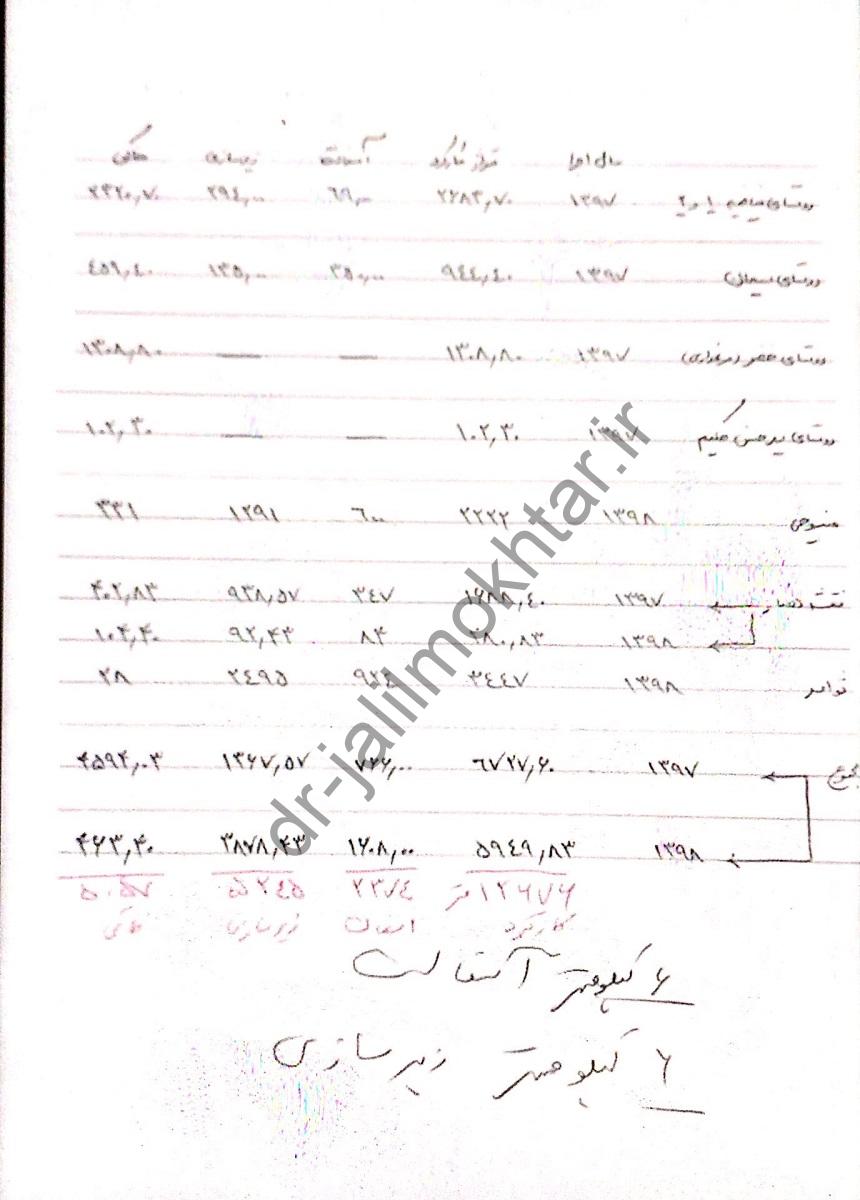 سال اجرا متراژ کارکرد آسفالت زیرسازی خاکی
روستای ۱ و ۲ ۱۳۹۷ ۲۶۸۳٫۷۰ ۶۹٫۰۰ ۲۹۴٫۰۰ ۲۳۲۰٫۷۰
روستای ۱۳۹۷ ۹۴۴٫۴۰ ۳۵۰٫۰۰ ۱۳۵٫۰۰ ۴۵۹٫۴۰
روستای ۱۳۹۷ ۱۳۰۸٫۸۰ — — ۱۳۰۸٫۸۰
روستای سید حسن حکیم ۱۳۹۷ ۱۰۲٫۳۰ — — ۱۰۲٫۳۰
۱۳۹۸ ۲۲۲۲ ۶۰۰ ۱۲۹۱ ۳۳۱
۱۳۹۷ ۱۶۸۸٫۴۰ ۳۴۷ ۹۳۸٫۵۷ ۴۰۲٫۸۳
۱۳۹۸ ۲۸۰٫۸۳ ۸۴ ۹۲٫۴۳ ۱۰۴٫۴۰
۱۳۹۸ ۳۴۴۷ ۹۲۴ ۲۴۹۵ ۲۸
مجموع ۱۳۹۷ ۶۷۲۷٫۶۰ ۷۶۶٫۰۰ ۱۳۶۷٫۵۷ ۴۵۹۴٫۰۳
۱۳۹۸ ۵۹۴۹٫۸۳ ۱۶۰۸٫۰۰ ۳۸۷۸٫۴۳ ۴۶۳٫۴۰
۱۲۶۷۶ متر ۲۳۷۴ ۵۲۴۵ ۵۰۵۷
کارکرد اسفالت زیرسازی خاکی
۶ کیلومتر آسفالت
۶ کیلومتر زیرسازی
dr-jalilmokhtar.ir